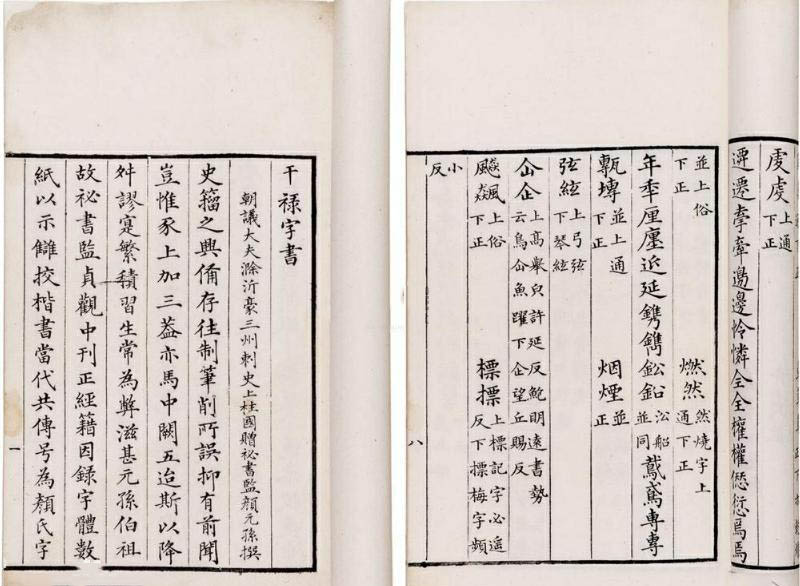 干祿字書
朝議大夫滁沂豪三州刺史上柱國贈祕書監顏元孫撰
史籀之興俻存往制筆削所誤抑有前聞
豈惟豕上加三葢亦馬中闕五迨斯以降
舛謬寔繁積習生常為弊滋甚元孫伯祖
故祕書監貞觀中刊正經籍因錄字體數
紙以示讎挍楷書當代共傳号為顏氏字
一
虔上通下正
遷牽邉邊怜憐仝全權權愆焉焉
並上俗下正 燃然然燒字上通下正
年秊厘廛延鐫鈆鉛船並同鳶專專
甎塼並上通下正 烟煙並正
弦絃上弓弦下琴絃
仚企上高舉皃許延反鮑明遠書勢云鳥仚魚躍下企望丘賜反
飈飆上俗下正 標摽上標記字必遥反下摽梅字頻
小反
八